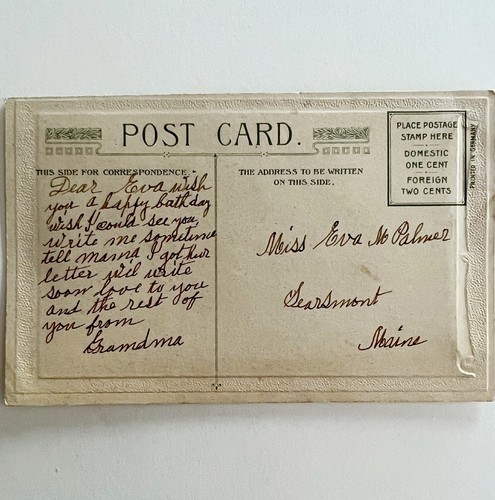 POST CARD.
THIS SIDE FOR CORRESPONDENCE.
THE ADDRESS TO BE WRITTEN
ON THIS SIDE.
PLACE POSTAGE
STAMP HERE
DOMESTIC
ONE CENT
FOREIGN
TWO CENTS
PRINTED IN GERMANY
Dear Eva wish
you a happy bathday
wish I could see you
write me sometime
tell mama I got hur
letter wil write
soon love to you
and the rest of
you from
Gramdma
Miss Eva M Palmer
Searsmont
Maine